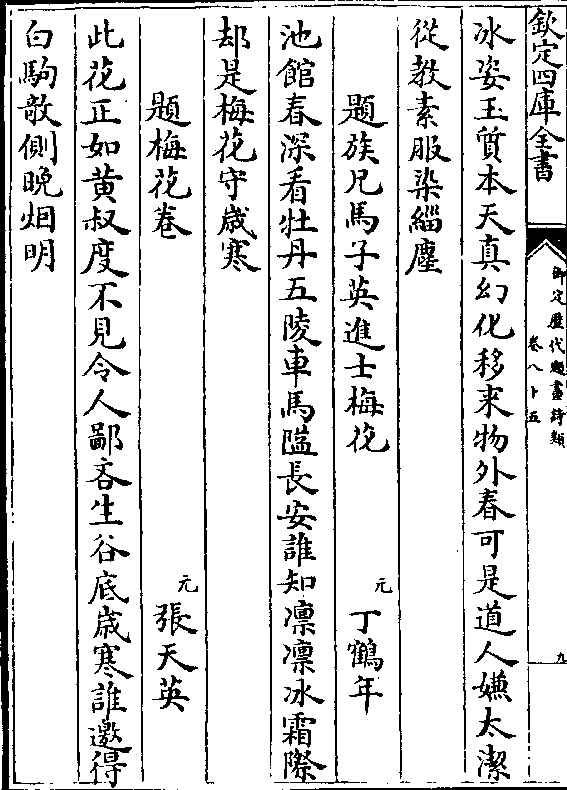 欽定四庫全書
御定歷代題畫詩類
卷八十五
九
冰姿玉質本天真幻化移来物外春可是道人嫌太潔
從教素服染緇塵
題族兄馬子英進士梅花
元
丁鶴年
池館春深看牡丹五陵車馬隘長安誰知凛凛冰霜際
却是梅花守歳寒
題梅花卷
元
張天英
此花正如黄叔度不見令人鄙吝生谷底歳寒誰邀得
白駒敧側晚烟明